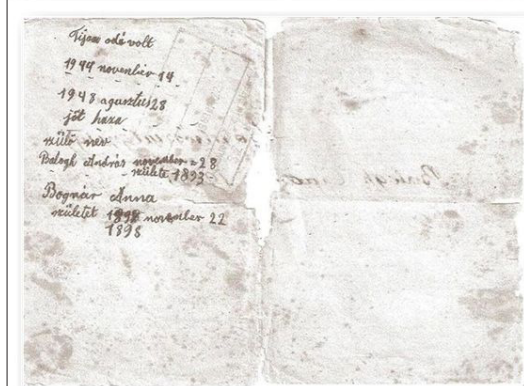 Fijam odé volt
1944 november 14
1948 agusztus 28
jöt haza
szülö nev
Balogh András november = 28
születe 1893
Bognár Anna
születet november 22
1898
Balogh